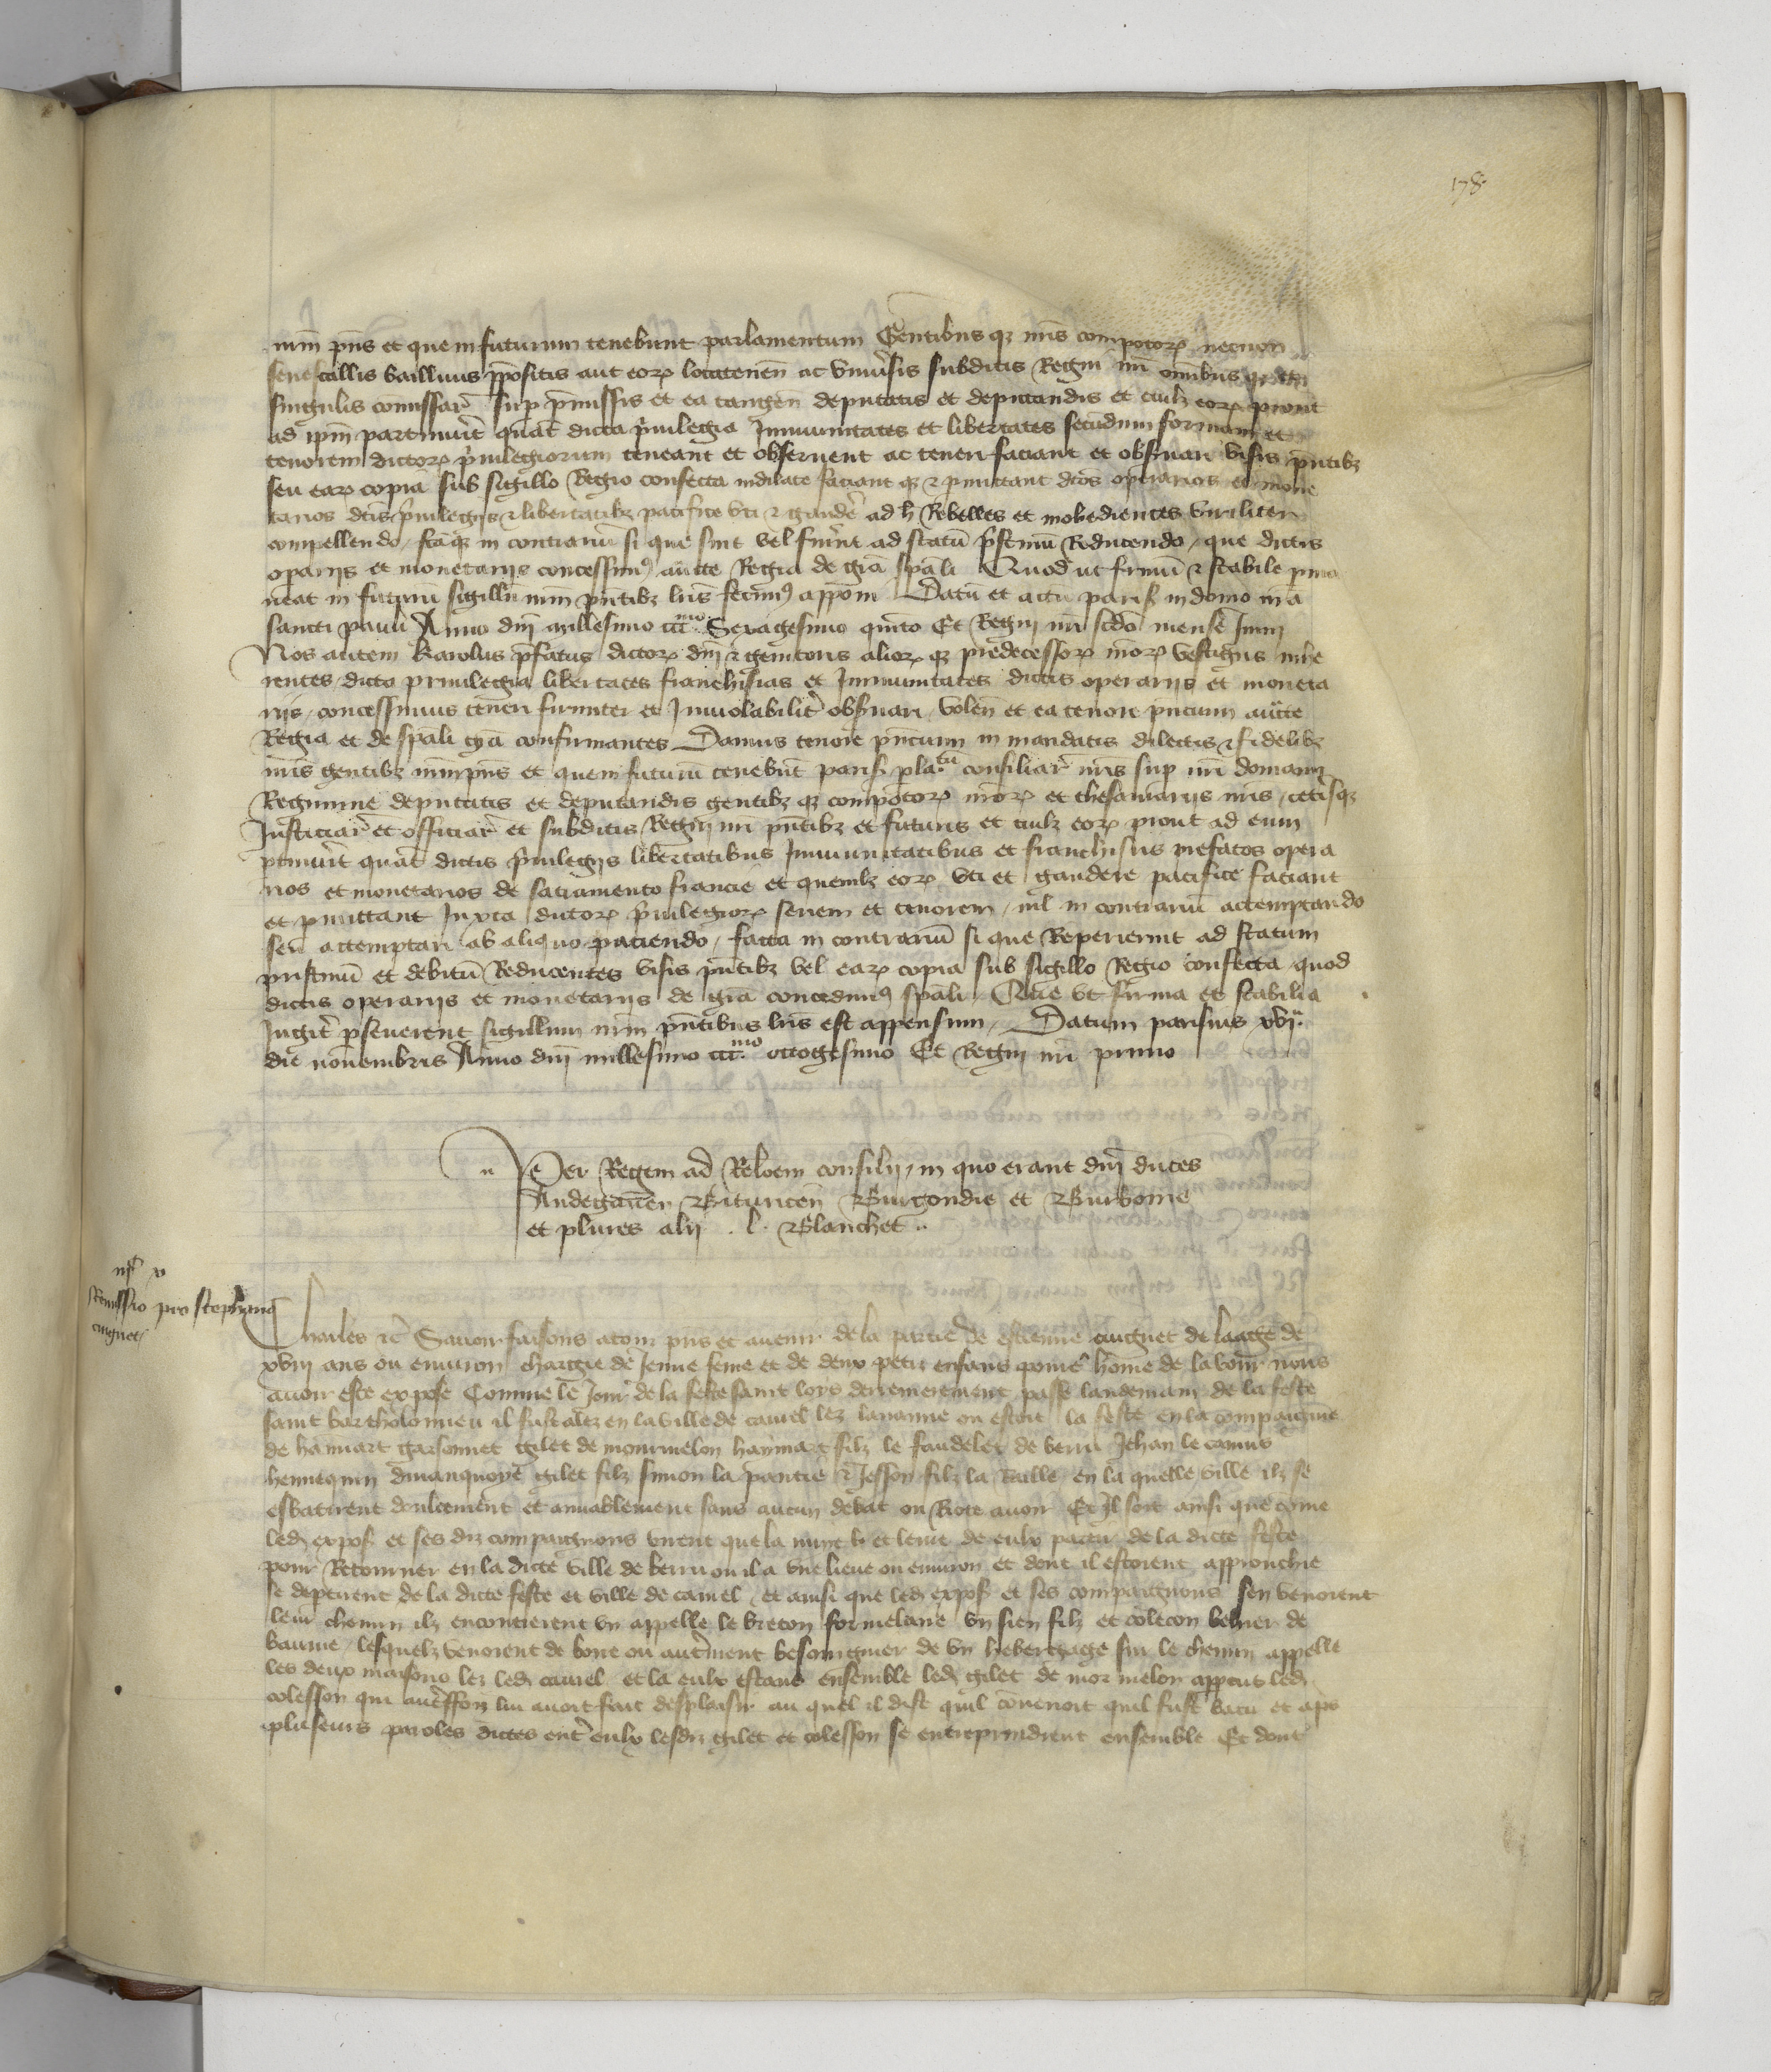 178
nrm̄ pn̄s et que in futurum tenebunt parlamentum Gentibus qꝫ nr̄is compotoꝝ necnon
senescallis baillivis p̄positis aut eoꝝ locatenen̄ ac vniūsis subditis Regni nr̄i om̄ibus
singulis com̄issar̄ sup p̄missis et ea tangen̄ deputatis et deputandis et cuilꝫ eoꝝ prout
ad ip̄m partinuīt quat̄ dicta p̄uilegia Jmmunitates et libertates secūdum formam et
tenorem dictoꝝ p̄uilegiorum teneant et obseruent ac teneri faciant et obs̄uari visis pn̄tibꝫ
seu eaꝝ copia sub sigillo Regio confecta indilate faciant qꝫ ⁊ p̄mittant dc̄os op̄arios et mone
tarios dc̄is p̄uilegijs ⁊ libertatibꝫ pacifice vti ⁊ gaudē ad h̄ Rebelles et inobedientes viriliter
compellendo / fc̄aqꝫ in contrariū si que sint vel fuīnt ad statū p̄stinū Reducendo / que dictis
op̄arijs et monetarijs concessimꝰ auct̄te Regia de grā sp̄ali Quod ut firmū ⁊ stabile p̄ma
neat in futurū sigillū nrm̄ pn̄tibꝫ lr̄is fecimꝰ appon̄i Datū et actū parisꝫ in domo nr̄a
sancti pauli Anno dn̄i millesimo ccc.mo Sexagesimo quīto Et Regni nr̄i scd̄o mense Junij
Nos autem Karolus p̄fatus dictoꝝ dn̄i ⁊ genitoris alioꝝ qꝫ predecessoꝝ nr̄oꝝ vestigijs inhe
rentes / dicta priuilegia libertates franchisias et Jmmunitates dictis operarijs et moneta
rijs / concessimus teneri firmiter et Jnuiolabilit̄ obs̄uari / volen̄ et ea tenore pn̄cium auct̄te
Regia et de sp̄ali grā confirmantes Damus tenore pn̄cium in mandatis dilectis ⁊ fidelibꝫ
nr̄is gentibꝫ nrm̄ pn̄s et que in futurū tenebūt parisꝫ pla.tū consiliar̄ nr̄is sup nr̄i domanij
Regimine deputatis et deputandis gentibꝫ qꝫ compotoꝝ nr̄oꝝ et thesaurarijs nr̄is / cetisqꝫ
Justiciar̄ et officiar̄ et subditis Regni nr̄i pn̄tibꝫ et futuris et cuilꝫ eoꝝ prout ad eum
ptinuīt quat̄ dictis p̄uilegijs libertatibus Jmmunitatibus et franchisiis prefatos opera
rios et monetarios de sacramento francie et quemlꝫ eoꝝ vti et gaudere pacifice faciant
et p̄mittant Juxta dictoꝝ p̄uilegioꝝ seriem et tenorem / nil in contrariū attemptando
seu attemptari ab aliquo paciendo / facta in contrariū si que Reperierint ad statum
pristinū et debitū Reducentes visis pn̄tibꝫ vel eaꝝ copia sub sigillo Regio confecta quod
dictis operarijs et monetarijs de grā concedimꝰ sp̄ali / Que vt firma et stabilia
Jugit̄ p̄seuerent sigillum nrm̄ pn̄tibus lr̄is est appensum / Datum parisius xvij.ª
die nouembris Anno dn̄i millesimo ccc.mo octogesimo Et Regni nr̄i primo
Per Regem ad Reloem consilij / in quo erant dn̄i duces
Andegauen̄ Bituricen̄ Burgondie et Burbonie
et plures alij . l. Blanchet
Remissio pro stephano
cuignet
Charles ⁊c̄ Sauoir faisons a tous pn̄s et auenir de la partie de estienne cuignet de laage de
xviij ans ou enuiron chargie de Jeune feme et de deux petiz enfans poure hōme de labour nous
auoir este expose Comme le Jour de la feste saint lors derrenierement passe landemain de la feste
saint bartholomieu il fust alez en la ville de cauiel lez lananne ou estoit la feste en la compaignie
de hannart garsonnet gilet de mourmelon hannart filz le faudelet de berru Jehan le camus
hennequin dinanquoye gilet filz simon la prantie ⁊ Jesson filz la Raille en la quelle ville ilz se
esbatirent doulcement et amiablement sans aucun debat ou Riote auoir Et Jl soit ainsi que cōme
ledꝫ exposꝫ et ses diz compaignons virent que la nuyt et leure de eulx partir de la dicte feste
pour Retourner en la dicte ville de berru ou il a vne lieue ou enuiron et dont il estoient approuchie
se deptirent de la dicte feste et ville de cauiel / et ainsi que ledꝫ exposꝫ et ses compaignons sen venoient
leur chemin ilz encontrerent vn appelle le breton formelane vn sien filz et colecon beluer de
baume / lesquelz venoient de boire ou autr̄ment besoungner de vn hebergage sur le chemin appelle
les deux maisons lez ledꝫ cauiel et la eulx estans ensemble ledꝫ gilet de mormelon appcut ledꝫ
colesson qui aut̄effoiz lui auoit fait desplaisir au quel il dist quil cōuenoit quil fust batu et ap̄s
pluseurs paroles dictes entr̄ eulx lesdiz gilet et colesson se entreprindrent ensemble Et dont